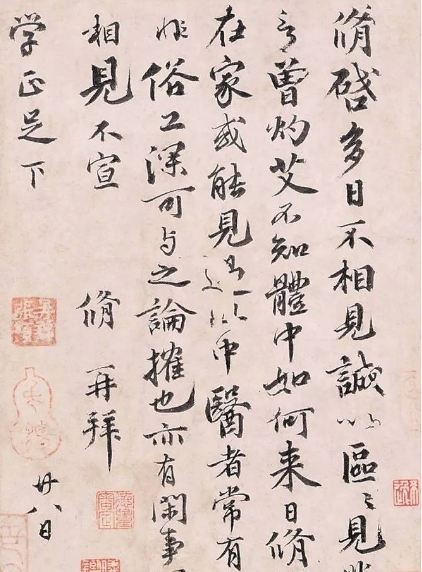 脩啓多日不相見誠以區區見
言曾灼艾不知體中如何来日脩
在家或能見過此中醫者常有
非俗工深可与之論搉也亦有閑事
相見不宣 脩再拜
学正足下 廿八日